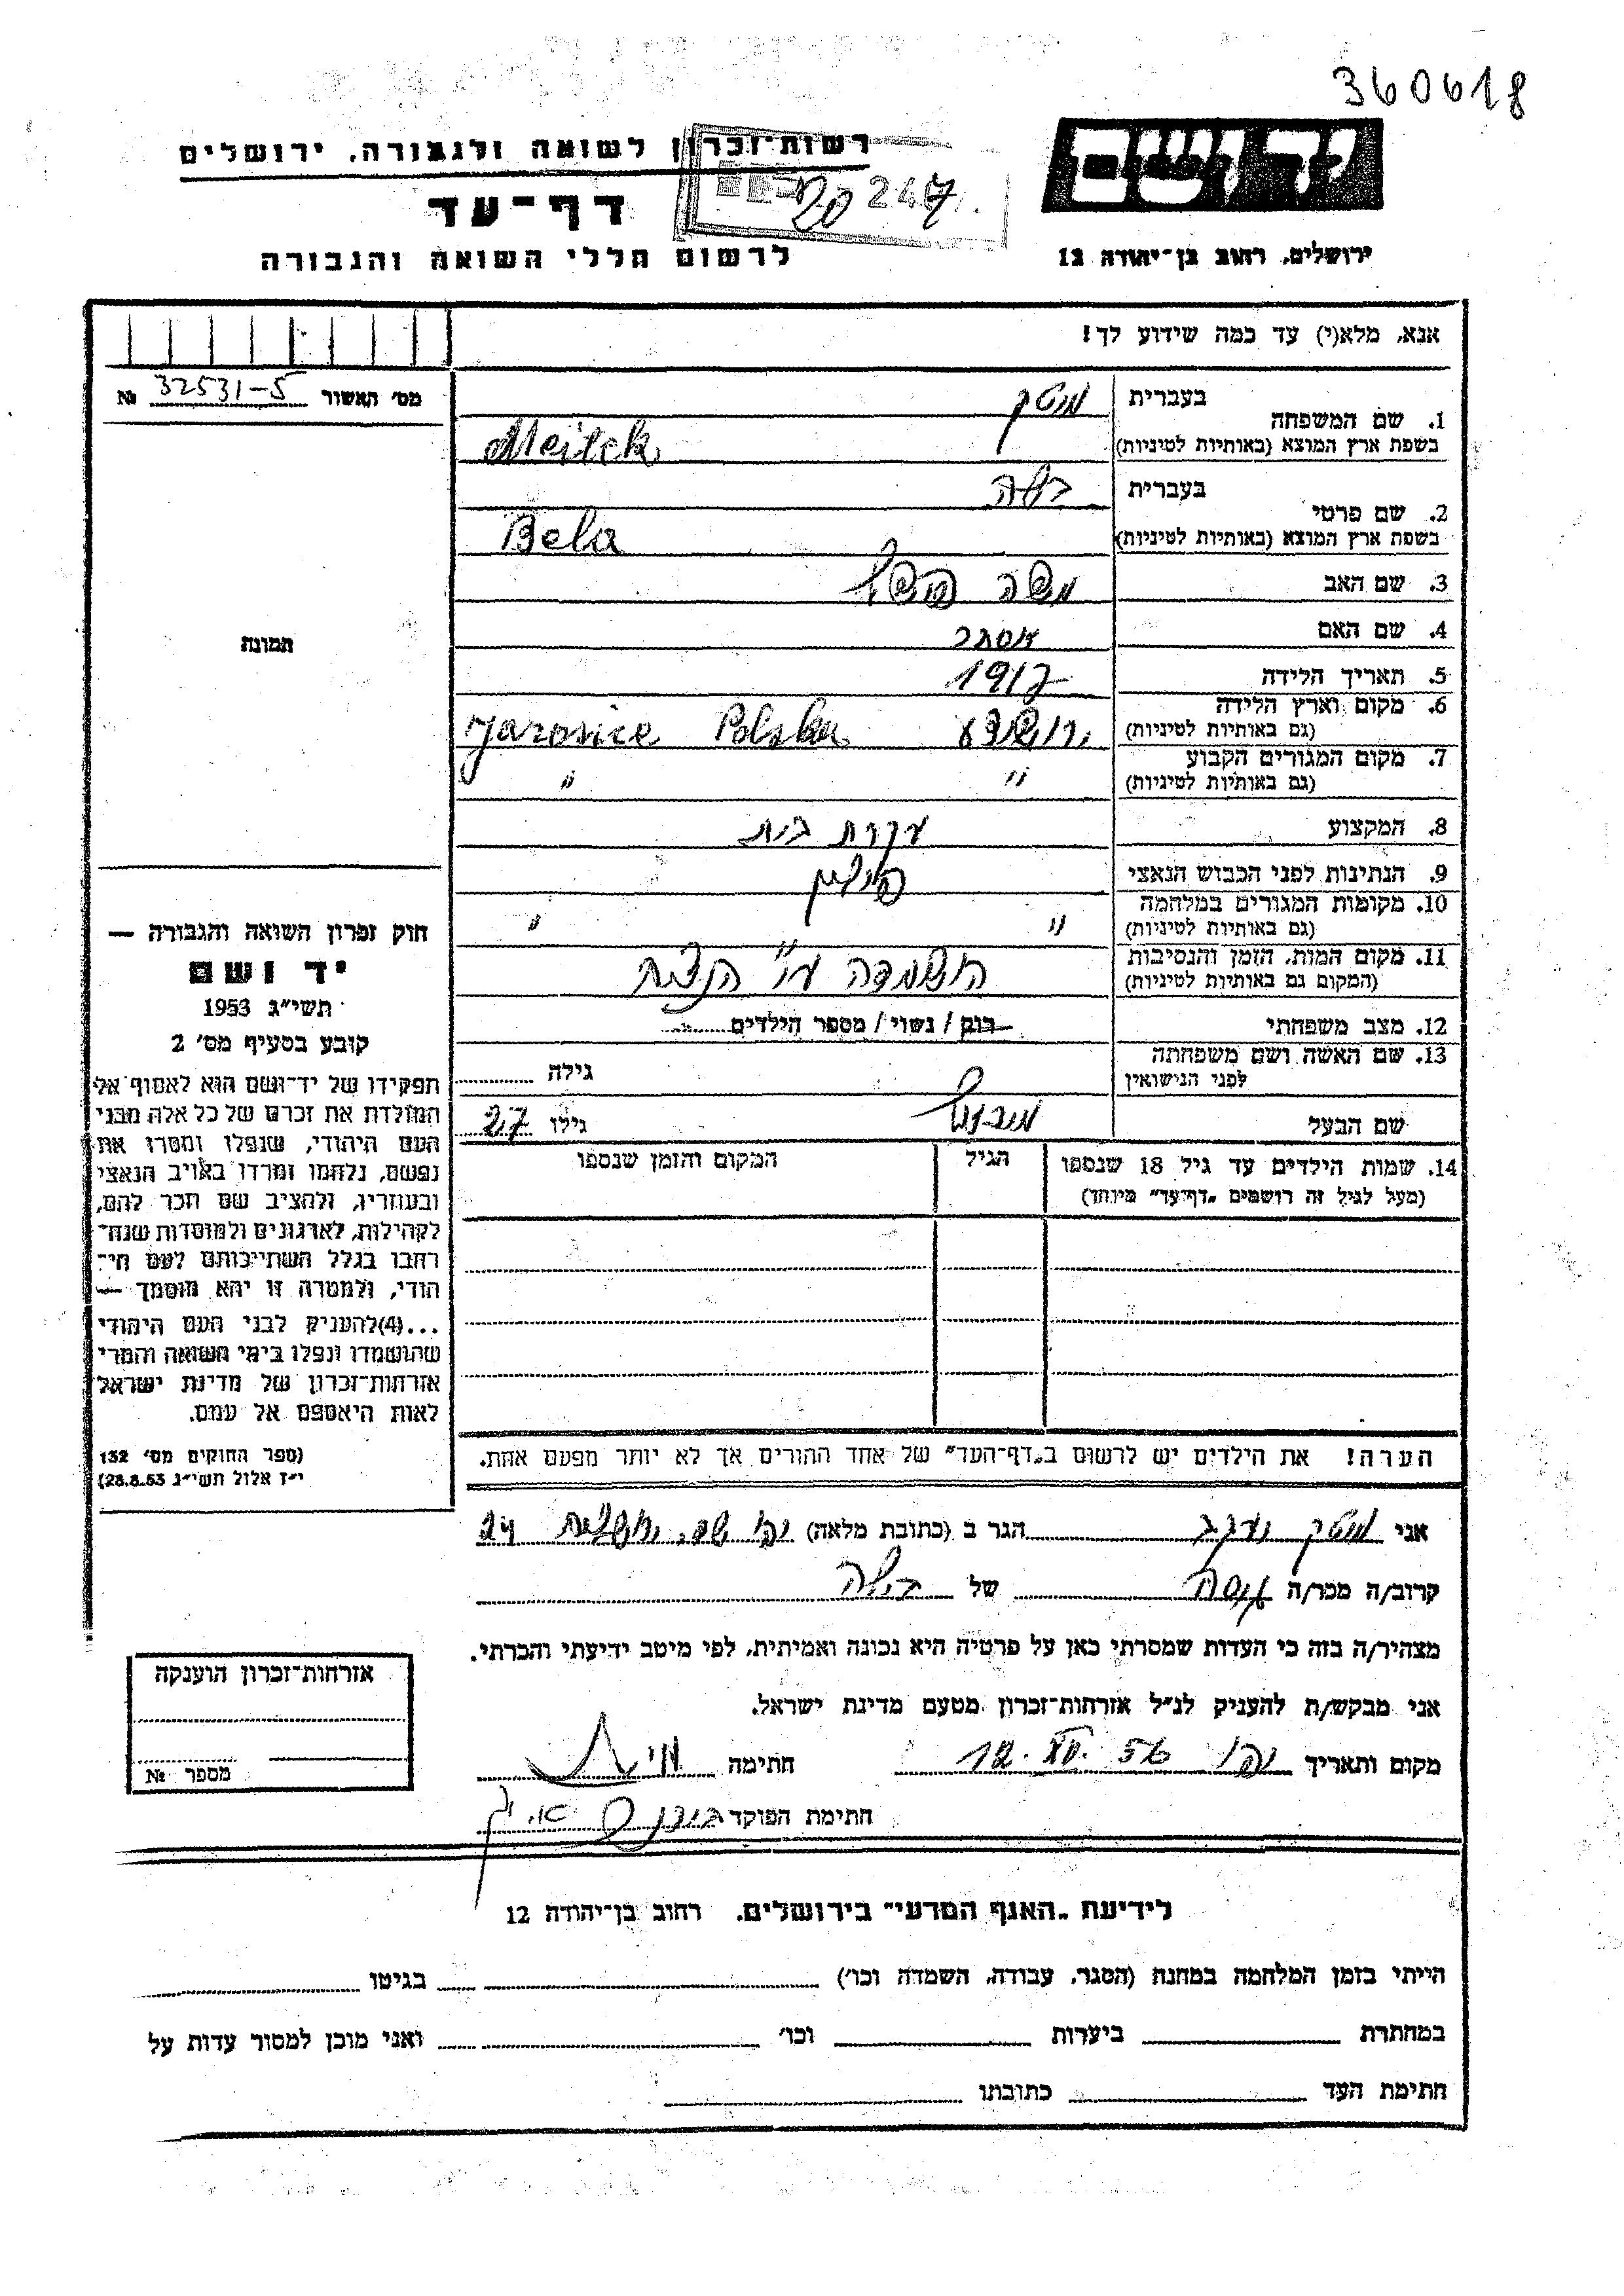 360618
רשות־זכרון לשואה ולגבורה, ירושלים
יד ושם
20 247
דף־עד
לרשום חללי השואה והגבורה
ירושלים, רחוב בן־יהודה 12
אנא, מלא(י) עד כמה שידוע לך!
מס' האשור 32531-5 №
תמונה
1. שם המשפחה
בעברית מיטק
בשפת ארץ המוצא (באותיות לטיניות) Meitek
2. שם פרטי
בעברית בלה
בשפת ארץ המוצא (באותיות לטיניות) Bela
3. שם האב משה
4. שם האם אסתר
5. תאריך הלידה 1917
6. מקום וארץ הלידה
(גם באותיות לטיניות) Jarosice Polska
7. מקום המגורים הקבוע
(גם באותיות לטיניות) " "
8. המקצוע עקרת בית
9. הנתינות לפני הכבוש הנאצי פולין
10. מקומות המגורים במלחמה
(גם באותיות לטיניות) " "
11. מקום המות, הזמן והנסיבות
(המקום גם באותיות לטיניות) הושמדה ע"י הנצים
12. מצב משפחתי רוק / נשוי / מספר הילדים
13. שם האשה ושם משפחתה
לפני הנישואין
גילה
שם הבעל גילו 27
14. שמות הילדים עד גיל 18 שנספו
(מעל לגיל זה רושמים "דף־עד" מיוחד)
הגיל
המקום והזמן שנספו
הערה! את הילדים יש לרשום ב"דף־העד" של אחד ההורים אך לא יותר מפעם אחת.
חוק זכרון השואה והגבורה —
יד ושם
תשי"ג 1953
קובע בסעיף מס' 2
תפקידו של יד־ושם הוא לאסוף אל
המולדת את זכרם של כל אלה מבני
העם היהודי, שנפלו ומסרו את
נפשם, נלחמו ומרדו באויב הנאצי
ובעוזריו, ולהציב שם וזכר להם,
לקהילות, לארגונים ולמוסדות שנח־
רבו בגלל השתייכותם לעם הי־
הודי, ולמטרה זו יהא מוסמך —
...(4)להעניק לבני העם היהודי
שהושמדו ונפלו בימי השואה והמרי
אזרחות־זכרון של מדינת ישראל
לאות היאספם אל עמם.
(ספר החוקים מס' 132
י"ז אלול תשי"ג 28.8.53)
אני מיטק יעקב הגר ב (כתובת מלאה) יפו 24
קרוב/ה מכר/ה של בילה
מצהיר/ה בזה כי העדות שמסרתי כאן על פרטיה היא נכונה ואמיתית, לפי מיטב ידיעתי והכרתי.
אני מבקש/ת להעניק לנ"ל אזרחות־זכרון מטעם מדינת ישראל.
מקום ותאריך יפו 12. 56 חתימה
חתימת הפוקד
אזרחות־זכרון הוענקה
מספר №
לידיעת "האגף המדעי" בירושלים, רחוב בן־יהודה 12
הייתי בזמן המלחמה במחנה (הסגר, עבודה, השמדה וכו') בגיטו
במחתרת ביערות וכו' ואני מוכן למסור עדות על
חתימת העד כתובתו